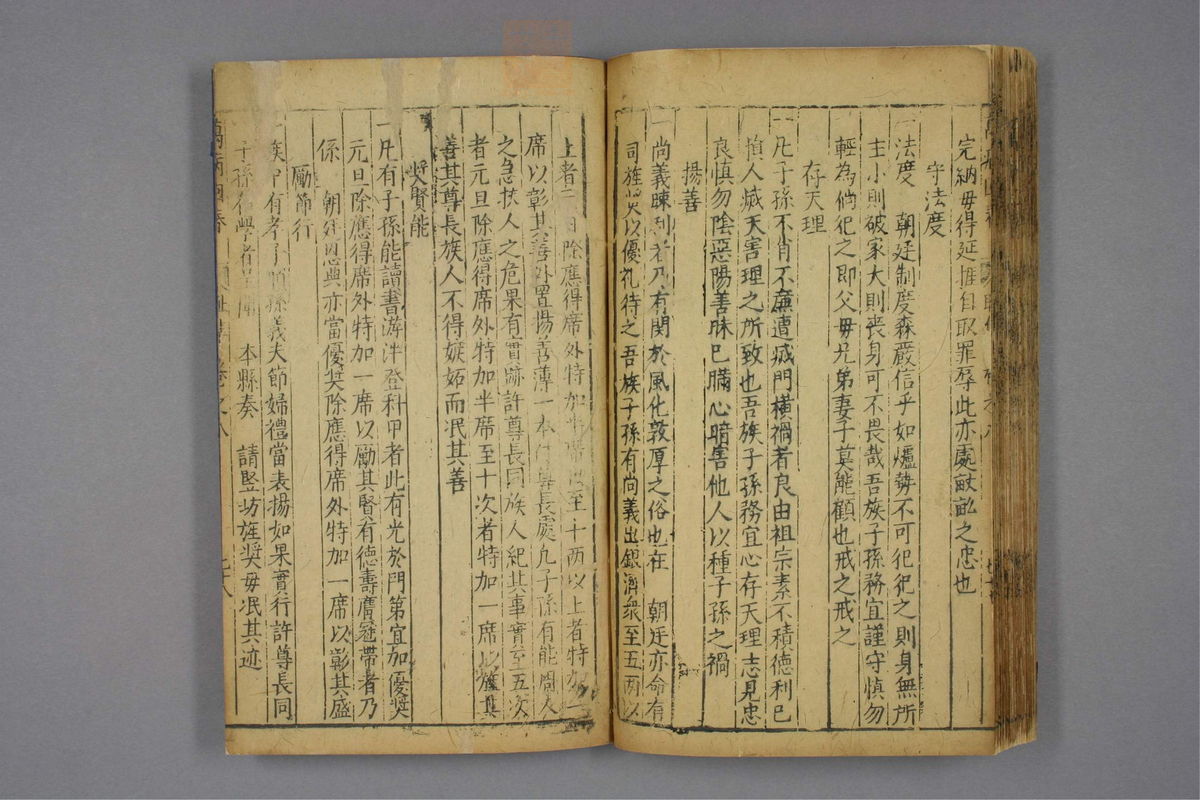 完納毋得延推自取罪辱此亦處畎畝之忠也
守法度
一法度　朝廷制度森嚴信乎如爐勢不可犯犯之則身無所
主小則破家大則喪身可不畏哉吾族子孫務宜謹守慎勿
輕為倘犯之即父母兄弟妻子莫能顧也戒之戒之
存天理
一凡子孫不肖不廉遭滅門橫禍者良由祖宗素不積德利已
損人滅天害理之所致也吾族子孫務宜心存天理志見忠
良慎勿陰惡陽善昧已瞞心暗害他人以種子孫之禍
揚善
一尚義疎利者乃有関於風化敦厚之俗也在　朝廷亦命有
司旌奨以優礼待之吾族子孫有尚義出銀濟衆至五两以
上者元日除應得席外特加半席至十两以上者特加一
席以彰其善外置揚善薄一本付尊長處凡子孫有能周人
之急扶人之危果有實跡許尊長同族人紀其事實至五次
者元旦除應得席外特加半席至十次者特加一席以旌其
善其尊長族人不得嫉妬而泯其善
奨賢能
一凡有子孫能讀書游泮登科甲者此有光於門第宜加優奨
元旦除應得席外特加一席以勵其賢有德壽膺冠帶者乃
係　朝廷恩典亦當優奨除應得席外特加一席以彰其盛
勵節行
一族中有孝子順孫義夫節婦禮當表揚如果實行許尊長同
子孫在學者呈闻　本縣奏　請竪坊旌奨毋泯其迹